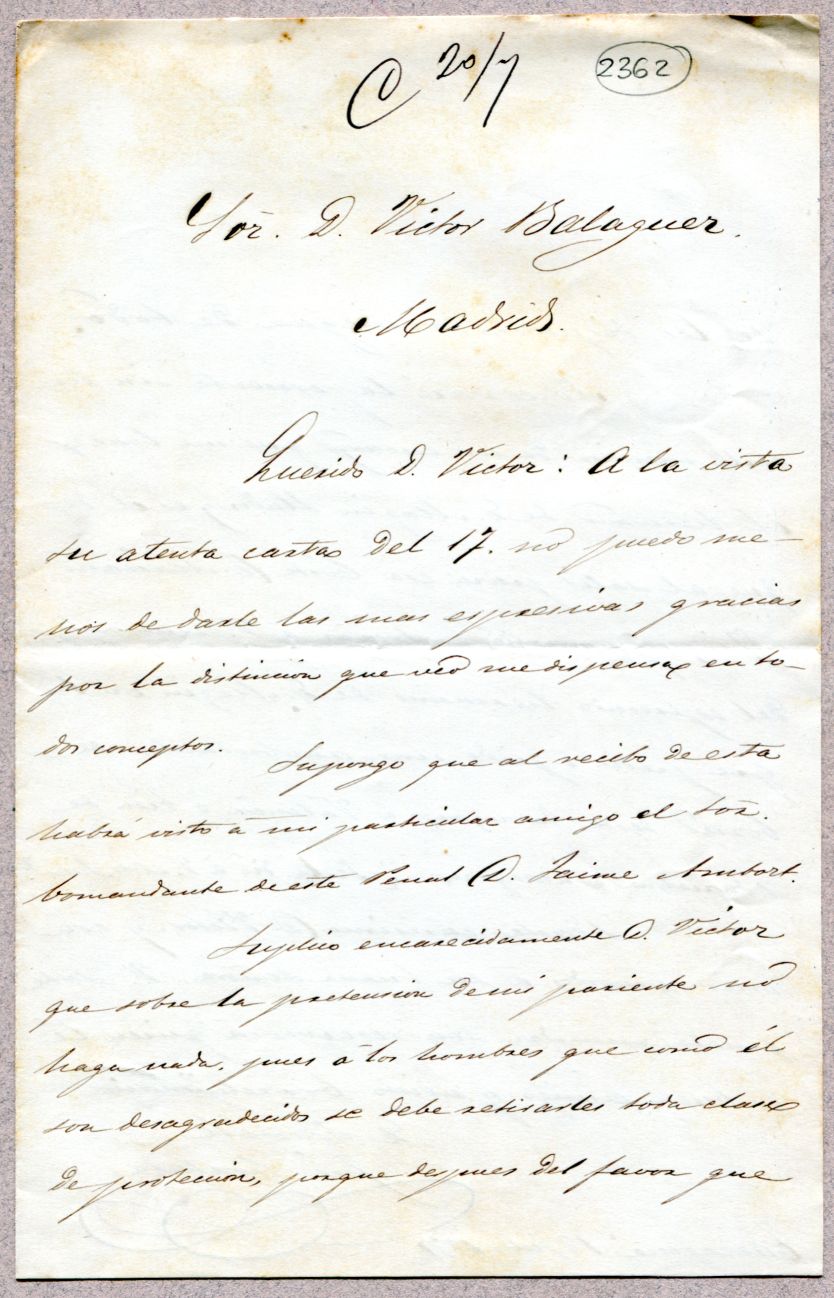 C 20/7 2362
Sor. D. Victor Balaguer.
Madrid.
Querido D. Victor: A la vista
su atenta carta del 17. no puedo me-
nos de darle las mas espresivas gracias
por la distincion que veo me dispensa en to-
dos conceptos.
Supongo que al recibo de esta
habrá visto á mi particular amigo el Sor.
Comandante de este Penal D. Jaime
Suplico encarecidamente D. Victor
que sobre la pretension de mi pariente no
haga nada. pues á los hombres que como él
son desagradecidos se debe retirarles toda clase
de proteccion, porque despues del favor que